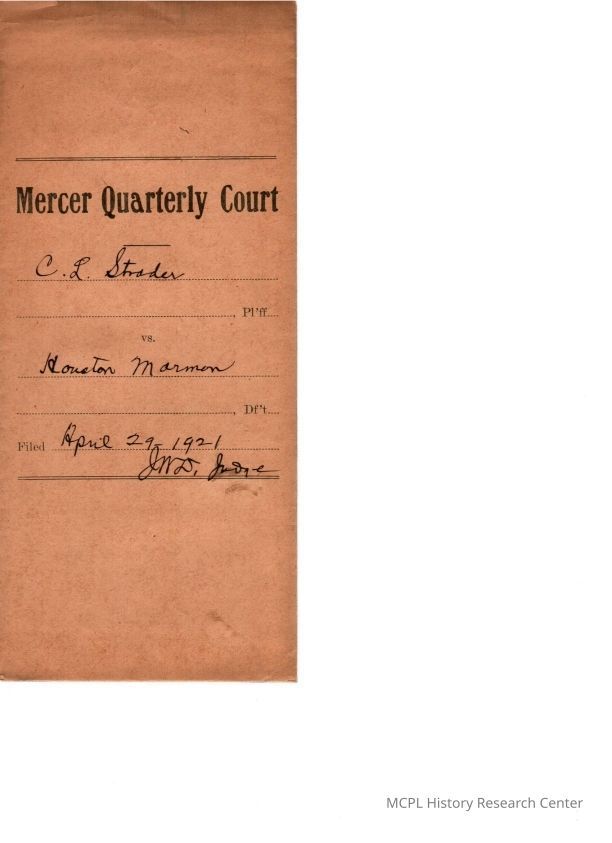 Mercer Quarterly Court
C. L. Strader
, Pl'ff.
vs.
Houston Marmon
, Df't.
Filed April 29- 1921
JWD, Judge
MCPL History Research Center